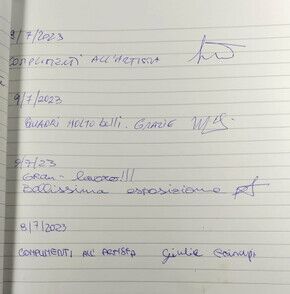 9/7/2023
COMPLIMENTI ALL'ARTISTA
9/7/2023
QUADRI MOLTO BELLI. GRAZIE
9/7/23
GRAN lavoro!!!
Bellissima esposizione
8/7/2023
COMPLIMENTI ALL'ARTISTA Giulia